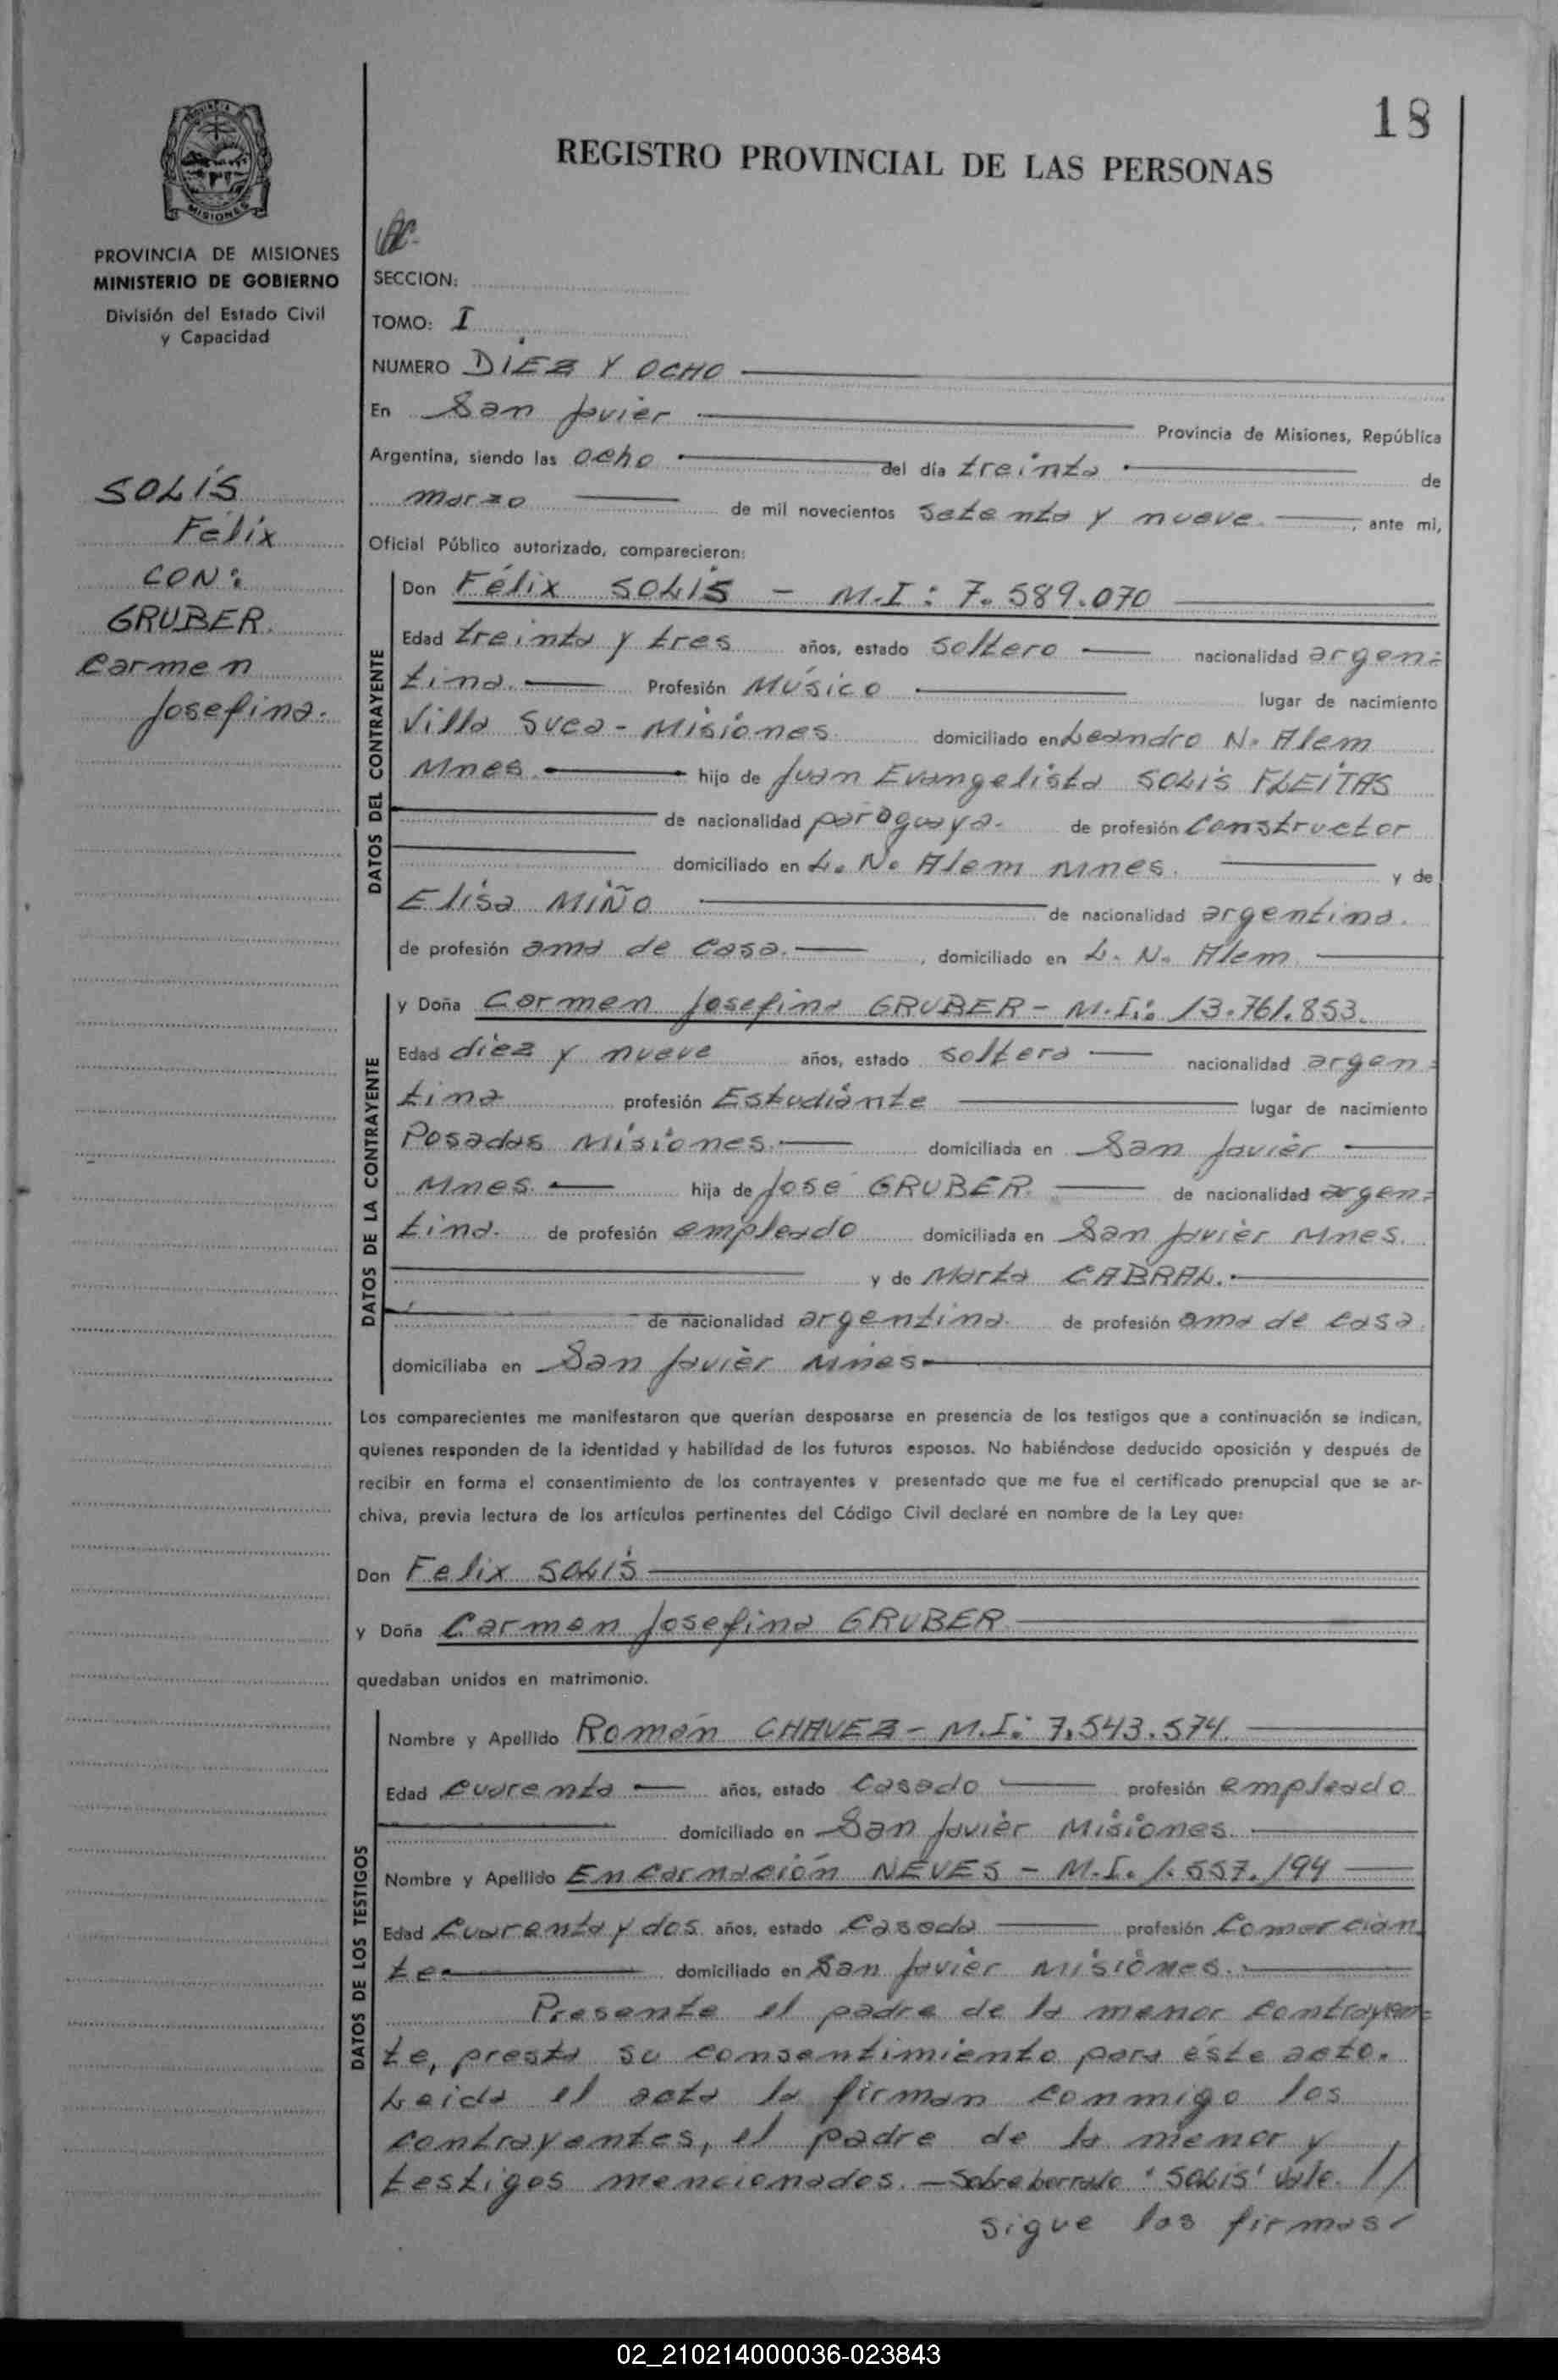 18
REGISTRO PROVINCIAL DE LAS PERSONAS
PROVINCIA
MISIONES
PROVINCIA DE MISIONES
MINISTERIO DE GOBIERNO
División del Estado Civil
y Capacidad
SOLÍS
Félix
CON:
GRUBER
Carmen
Josefina.
SECCION:
TOMO: I
NUMERO DIEZ Y OCHO
En San Javier Provincia de Misiones, República
Argentina, siendo las ocho del día treinta de
marzo de mil novecientos setenta y nueve. , ante mí,
Oficial Público autorizado, comparecieron:
DATOS DEL CONTRAYENTE
Don Félix SOLÍS - M.I: 7.589.070
Edad treinta y tres años, estado soltero nacionalidad argen=
tina. Profesión Músico lugar de nacimiento
Villa Svea - Misiones domiciliado en Leandro N. Alem
Mnes. hijo de Juan Evangelista SOLÍS FLEITAS
de nacionalidad paraguaya. de profesión Constructor
domiciliado en L. N. Alem Mnes. y de
Elisa MIÑO de nacionalidad argentina.
de profesión ama de casa. , domiciliado en L. N. Alem
DATOS DE LA CONTRAYENTE
y Doña Carmen Josefina GRUBER - M.I: 13.761.853.
Edad diez y nueve años, estado soltera nacionalidad argen=
tina profesión Estudiante lugar de nacimiento
Posadas Misiones. domiciliada en San Javier
Mnes. hija de José GRUBER de nacionalidad argen=
tina. de profesión empleado domiciliada en San Javier Mnes.
y de Marta CABRAL.
de nacionalidad argentina de profesión ama de casa
domiciliaba en San Javier Mnes
Los comparecientes me manifestaron que querían desposarse en presencia de los testigos que a continuación se indican,
quienes responden de la identidad y habilidad de los futuros esposos. No habiéndose deducido oposición y después de
recibir en forma el consentimiento de los contrayentes y presentado que me fue el certificado prenupcial que se ar-
chiva, previa lectura de los artículos pertinentes del Código Civil declaré en nombre de la Ley que:
Don Felix SOLÍS
y Doña Carmen Josefina GRUBER
quedaban unidos en matrimonio.
DATOS DE LOS TESTIGOS
Nombre y Apellido Román CHAVEZ - M.I: 7.543.574.
Edad cuarenta años, estado casado profesión empleado
domiciliado en San Javier Misiones.
Nombre y Apellido Encarnación NEVES - M.I. 1.557.194
Edad Cuarenta y dos años, estado Casada profesión Comercian
te domiciliado en San Javier Misiones.
Presente el padre de la menor contrayen=
te, presta su consentimiento para éste acto.
Leida el acta la firman conmigo los
contrayentes, el padre de la menor y
testigos mencionados. - Sobreborrado 'SOLIS' vale. //
sigue las firmas
02_210214000036-023843